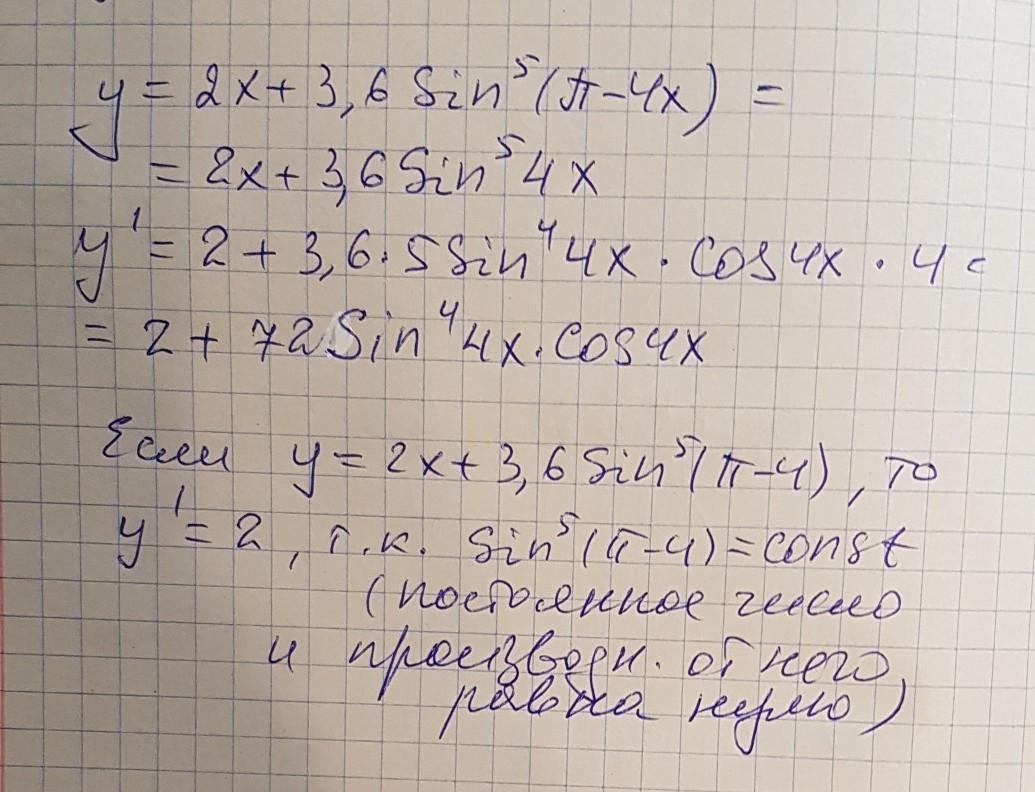 y = 2x + 3,6 Sin⁵(π-4x) =
= 2x + 3,6 Sin⁵ 4x
y' = 2 + 3,6 · 5 Sin⁴ 4x · Cos 4x · 4 =
= 2 + 72 Sin⁴ 4x · Cos 4x
Если y = 2x + 3,6 Sin⁵(π-4), то
y' = 2, т.к. Sin⁵(π-4) = const
(постоянное число
и производн. от него
равна нулю)